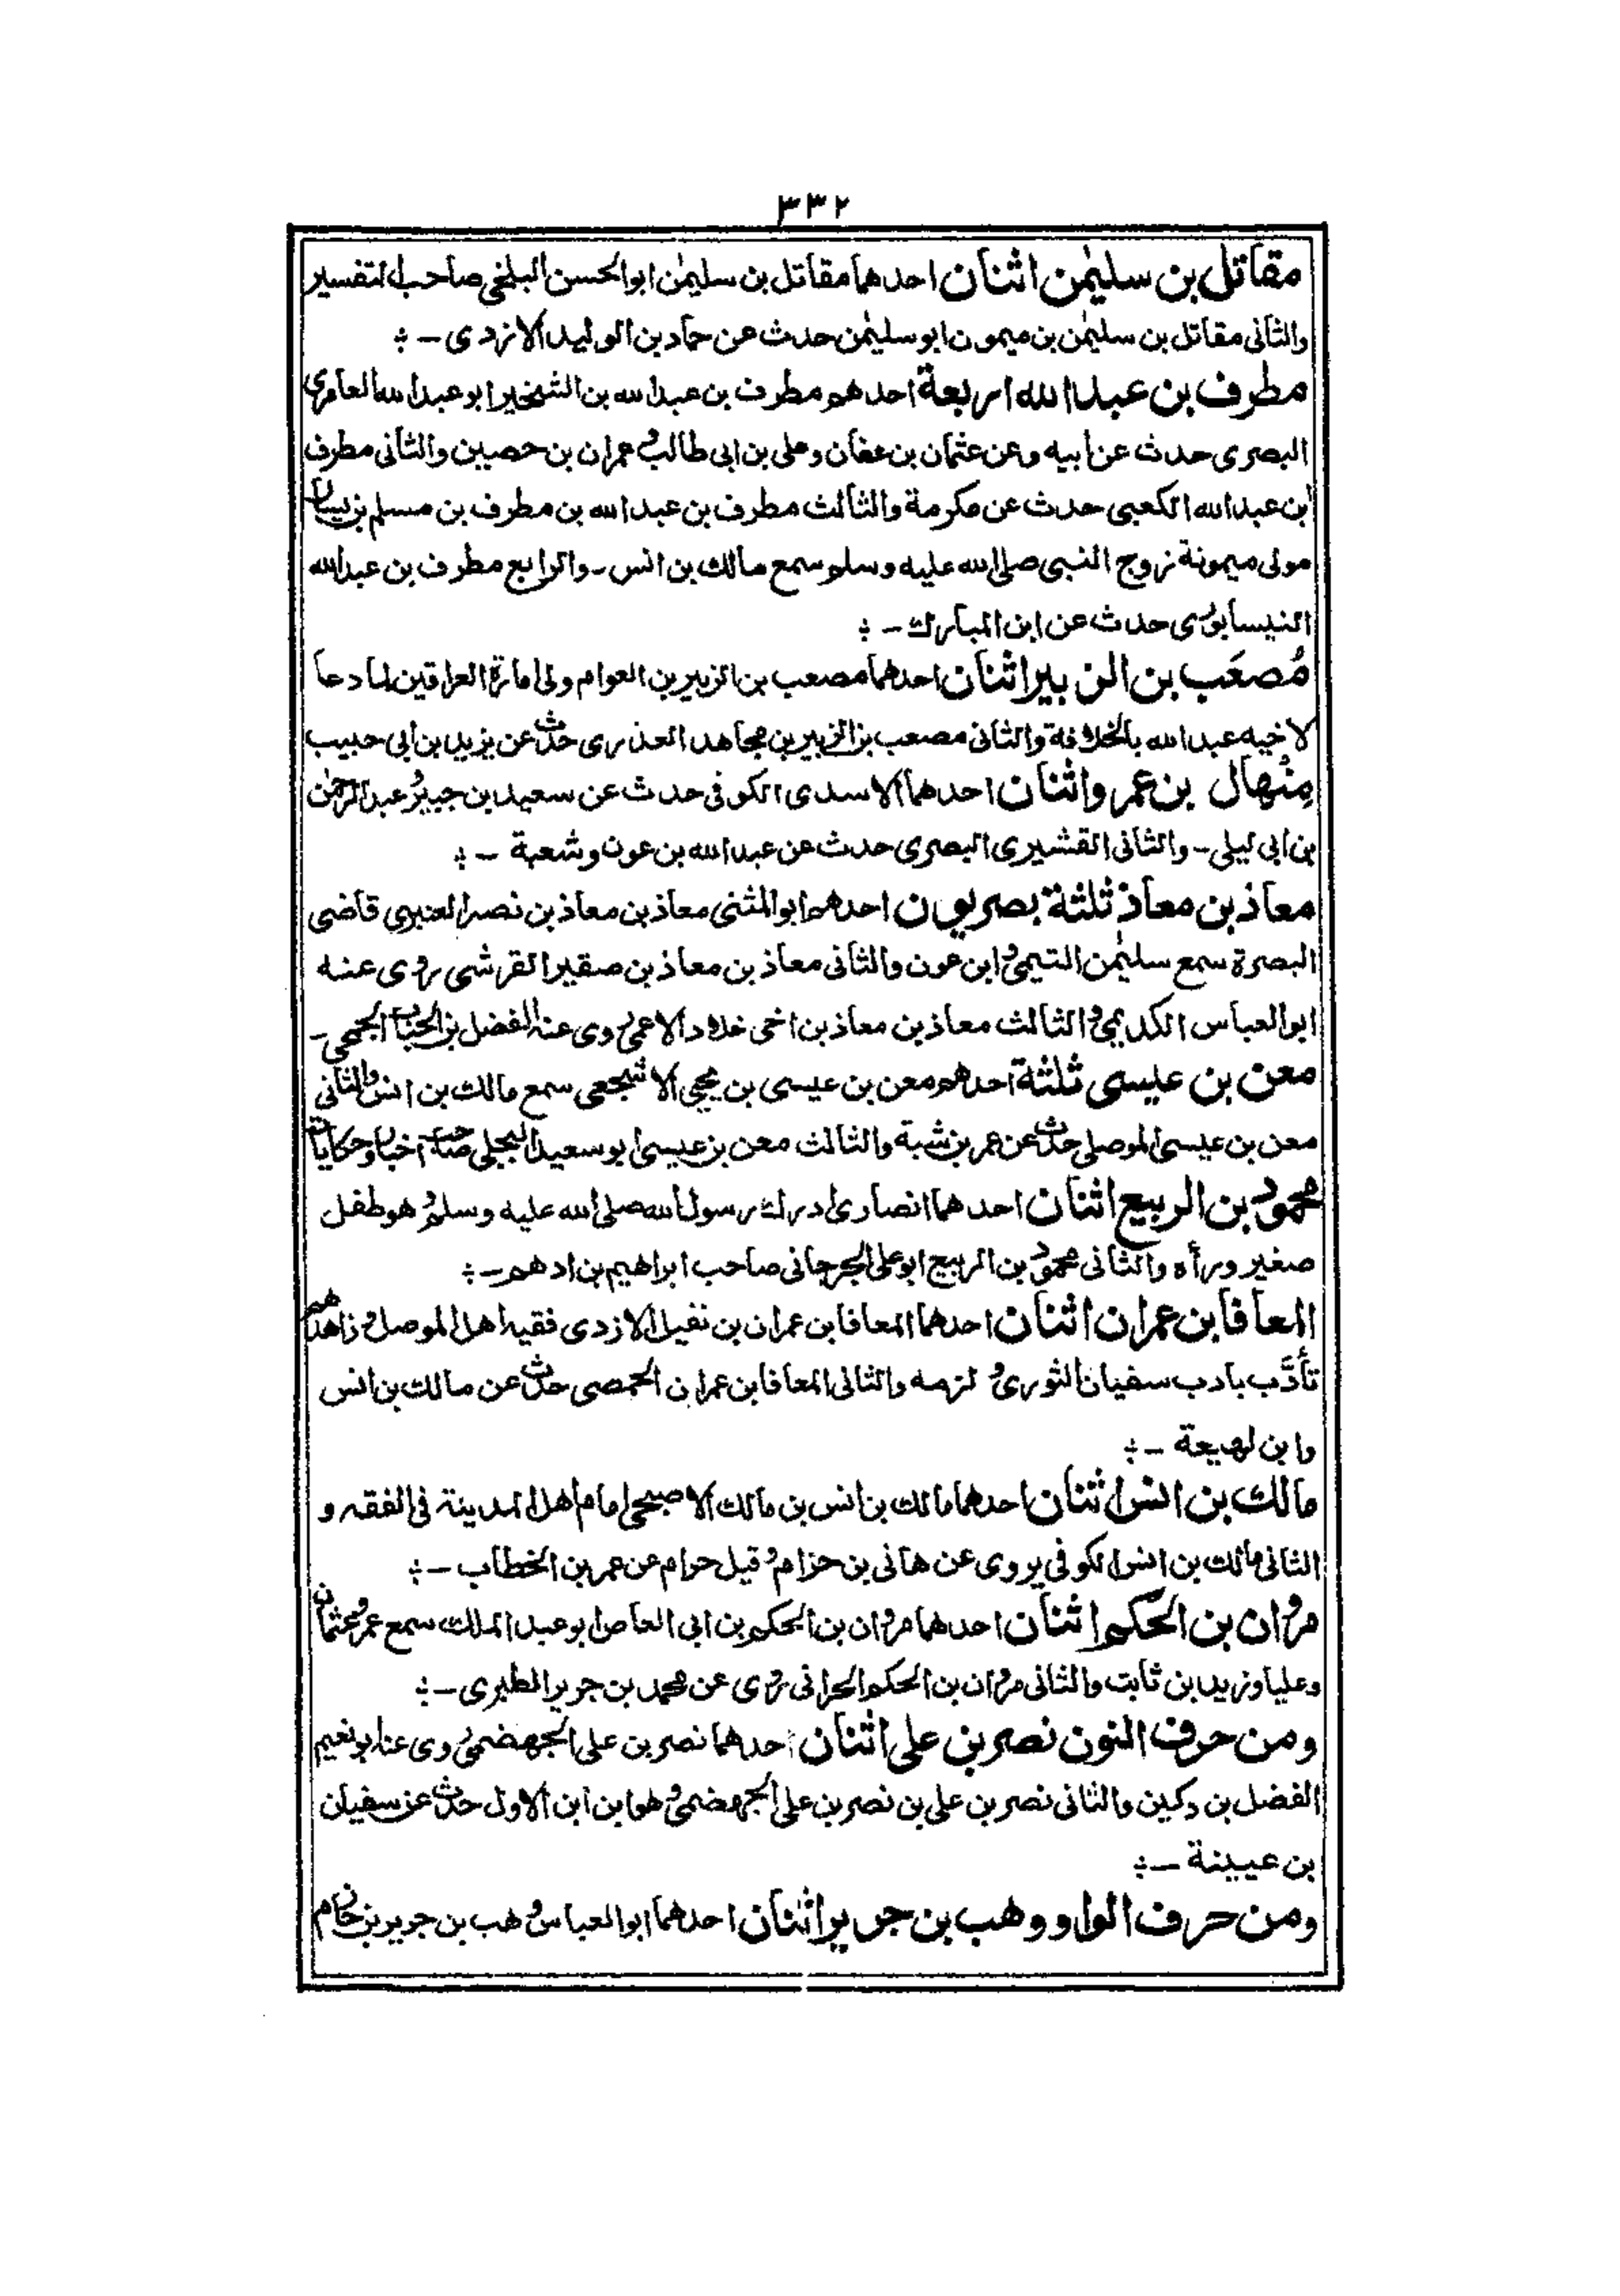 ٣٣٢
مقاتل بن سليمٰن اثنان احدهما مقاتل بن سليمٰن ابوالحسن البلخي صاحب التفسير
والثاني مقاتل بن سليمٰن بن ميمون ابو سليمٰن حدث عن حماد بن الوليد الازدى -
مطرف بن عبد الله اربعة احدهم مطرف بن عبد الله بن الشخير ابو عبد الله العامرى
البصرى حدث عن ابيه وعن عثمان بن عفان وعلى بن ابى طالب وعمران بن حصين والثانى مطرف
بن عبد الله الكعبى حدث عن عكرمة والثالث مطرف بن عبد الله بن مطرف بن مسلم بن يسار
مولى ميمونة زوج النبى صلى الله عليه وسلم سمع مالك بن انس - والرابع مطرف بن عبد الله
النيسابورى حدث عن ابن المبارك -
مُصعَب بن الزبير اثنان احدهما مصعب بن الزبير بن العوام ولى امارة العراقين لما دعا
لاخيه عبد الله بالخلافة والثانى مصعب بن الزبير بن مجاهد العذرى حدث عن يزيد بن ابى حبيب
مِنْهال بن عمرو اثنان احدهما الاسدى الكوفى حدث عن سعيد بن جبير وعبد الرحمٰن
بن ابى ليلى - والثانى القشيرى البصرى حدث عن عبد الله بن عون وشعبة -
معاذ بن معاذ ثلثة بصريون احدهم ابو المثنى معاذ بن معاذ بن نصر العنبرى قاضى
البصرة سمع سليمٰن التيمى وابن عون والثانى معاذ بن معاذ بن صقير القرشى روى عنه
ابو العباس الكديمى والثالث معاذ بن معاذ بن اخى خلاد الاعمى روى عنه الفضل بن الحباب الجمحى -
معن بن عيسى ثلثة احدهم معن بن عيسى بن يحيى الاشجعى سمع مالك بن انس والثانى
معن بن عيسى الموصلى حدث عن عمر بن شبة والثالث معن بن عيسى ابو سعيد البجلى صاحب اخبار وحكايات
محمود بن الربيع اثنان احدهما انصارى ادرك رسول الله صلى الله عليه وسلم وهو طفل
صغير ورأه والثانى محمود بن الربيع ابو على الجرجانى صاحب ابراهيم بن ادهم -
المعافا بن عمران اثنان احدهما المعافا بن عمران بن نفيل الازدى فقيه اهل الموصل وزاهدهم
تأدَّب بادب سفيان الثورى و لزمه والثانى المعافا بن عمران الحمصى حدث عن مالك بن انس
وابن لهيعة -
مالك بن انس اثنان احدهما مالك بن انس بن مالك الاصبحى امام اهل المدينة فى الفقه و
الثانى مالك بن انس الكوفى يروى عن هانى بن حزام وقيل حرام عن عمر بن الخطاب -
مروان بن الحكم اثنان احدهما مروان بن الحكم بن ابى العاص ابو عبد الملك سمع عمر وعثمان
وعليا وزيد بن ثابت والثانى مروان بن الحكم الحرانى روى عن محمد بن جرير الطبرى -
ومن حرف النون نصر بن على اثنان احدهما نصر بن على الجهضمى روى عنه ابو نعيم
الفضل بن دكين والثانى نصر بن على بن نصر بن على الجهضمى وهو ابن ابن الاول حدث عن سفيان
بن عيينة -
ومن حرف الواو وهب بن جرير اثنان احدهما ابو العباس وهب بن جرير بن حازم